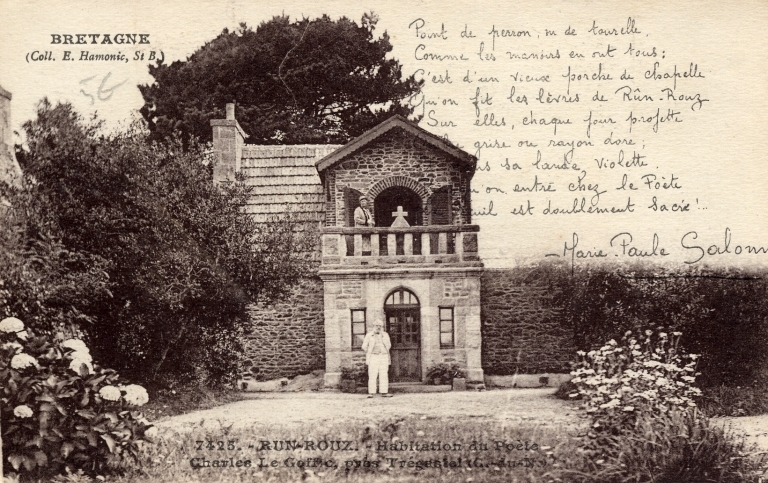 BRETAGNE
(Coll. E. Hamonic, St B.)
5€
Point de perron, ni de tourelle,
Comme les manoirs en ont tous;
C'est d'un vieux porche de chapelle
Qu'on fit les lèvres de Rûn-Rouz
Sur elles, chaque jour projette
grise ou rayon doré,
sa lande violette.
on entre chez le Poète
est doublement sacré!..
Marie Paule Salonn
7425. - RUN-ROUZ. - Habitation du Poète
Charles Le Goffic, près Trégastel (C.-du-N.)